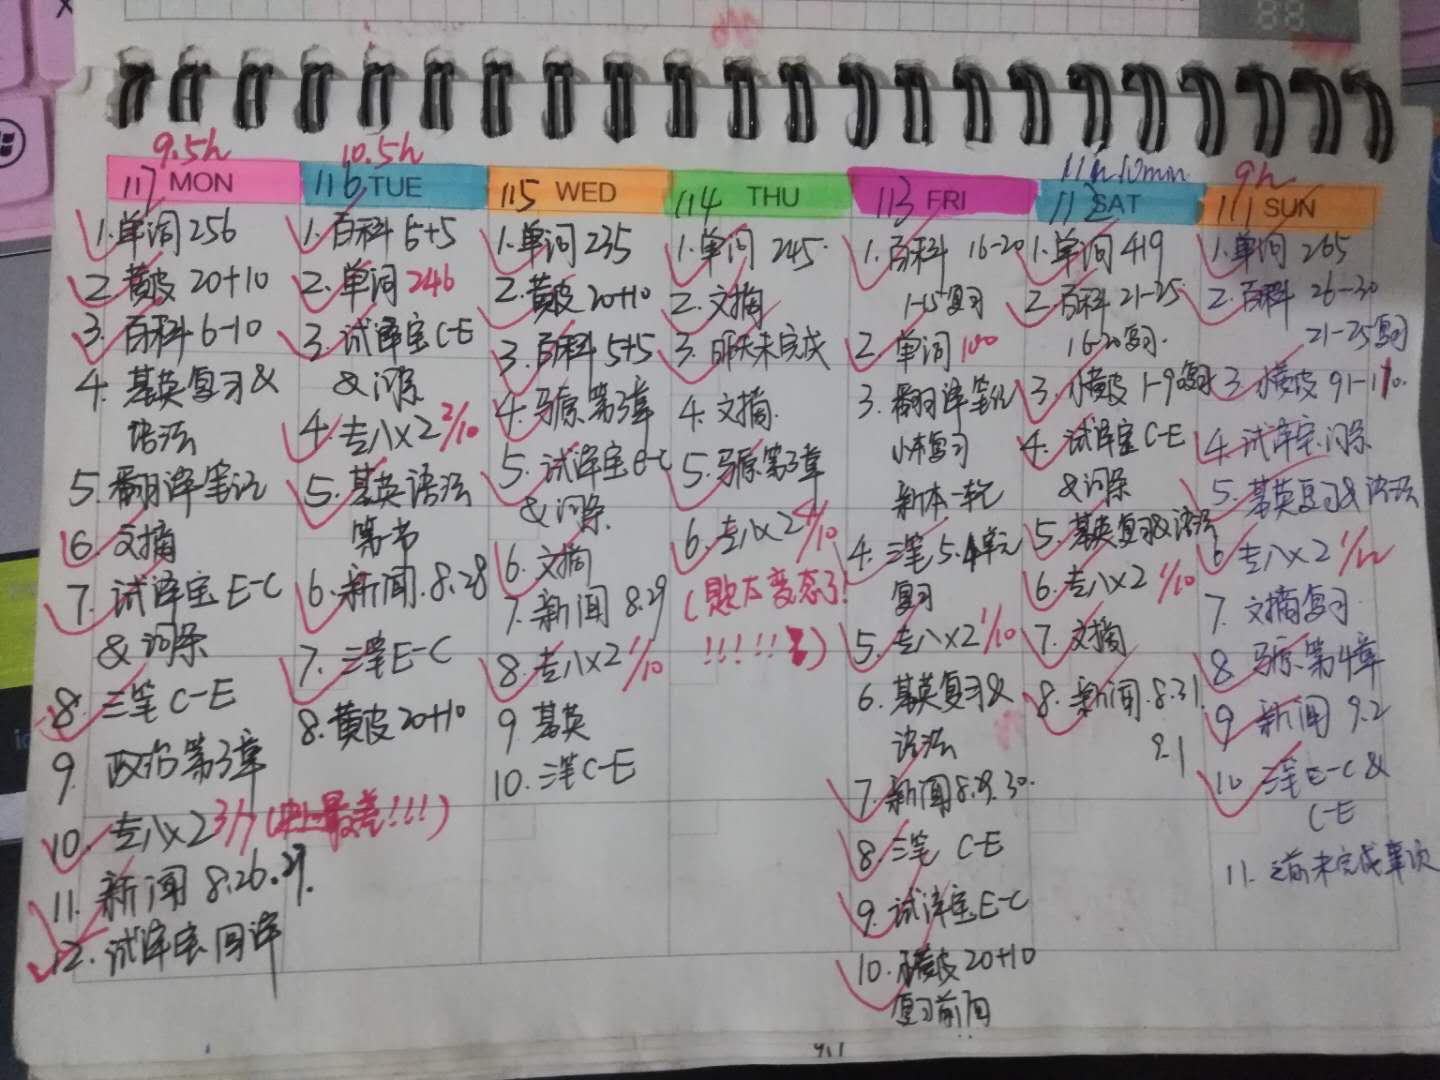 9.5h
117 MON
1.单词256
2.黄皮20+10
3.百科6-10
4.基英复习&
语法
5.翻译笔记
6.文摘
7.试译宝E-C
&词条
8.三笔C-E
9.政治第3章
10.专八×2 3/7(史上最差!!!)
11.新闻8.26.27.
12.试译宝回译
10.5h
116 TUE
1.百科5+5
2.单词246
3.试译宝C-E
&词条
4.专八×2 2/10
5.基英语法
第一节
6.新闻.8.28
7.三笔E-C
8.黄皮20+10
115 WED
1.单词235
2.黄皮20+10
3.百科5+5
4.马原第3章
5.试译宝E-C
&词条
6.文摘
7.新闻8.29
8.专八×2 1/10
9 基英
10.三笔C-E
114 THU
1.单词245.
2.文摘
3.昨天未完成
4.文摘.
5.马原第3章
6.专八×2 4/10
(题太变态了!
!!!!!)
113 FRI
1.百科16-20
1-15复习
2.单词100
3.翻译笔记
小本复习
新本一轮
4.三笔5.4单元
复习
5.专八×2 1/10
6.基英复习&
语法
7.新闻8.29.30.
8.三笔C-E
9.试译宝E-C
10.黄皮20+10
复习前面
11h10min
112 SAT
1.单词419
2.百科21-25
16-20复习.
3.小黄皮1-90复习
4.试译宝C-E
&词条
5.基英复习&语法
6.专八×2 1/10
7.文摘
8.新闻.8.31.
9.1
9h
111 SUN
1.单词265
2.百科26-30
21-25复习
3.小黄皮91-110.
4.试译宝.词条
5.基英复习&语法
6.专八×2
7.文摘复习
8.马原第4章
9.新闻9.2
10.三笔E-C&
C-E
11.之前未完成事项